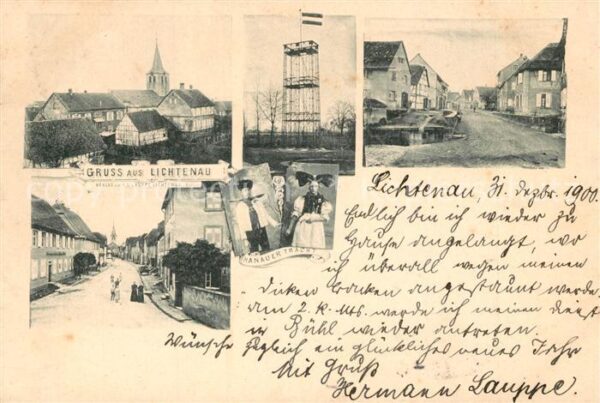 GRUSS AUS LICHTENAU
HANAUER TRACHT
Lichtenau, 31. Dezbr. 1900.
Endlich bin ich wieder zu
Hause angelangt, wo
ich überall wegen meinen
dicken Backen angestaunt werde
am 2. k. Mts. werde ich meinen Dienst
in Bühl wieder antreten.
Wünsche sogleich ein glückliches neues Jahr
Mit Gruß
Hermann Lauppe.